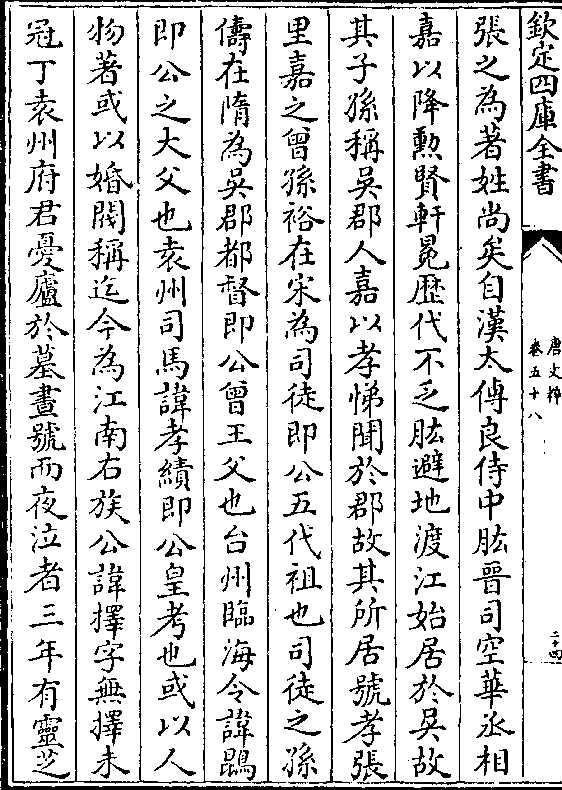 欽定四庫全書
唐文粹
卷五十八
二十四
張之為著姓尚矣自漢太傅良侍中肱晉司空華丞相
嘉以降勲賢軒冕歴代不乏肱避地渡江始居於吳故
其子孫稱吳郡人嘉以孝悌聞於郡故其所居號孝張
里嘉之曾孫裕在宋為司徒即公五代祖也司徒之孫
儔在隋為吳郡都督即公曾王父也台州臨海令諱鵾
即公之大父也袁州司馬諱孝績即公皇考也或以人
物著或以婚閥稱迄今為江南右族公諱擇字無擇未
冠丁袁州府君憂廬於墓晝號而夜泣者三年有靈芝